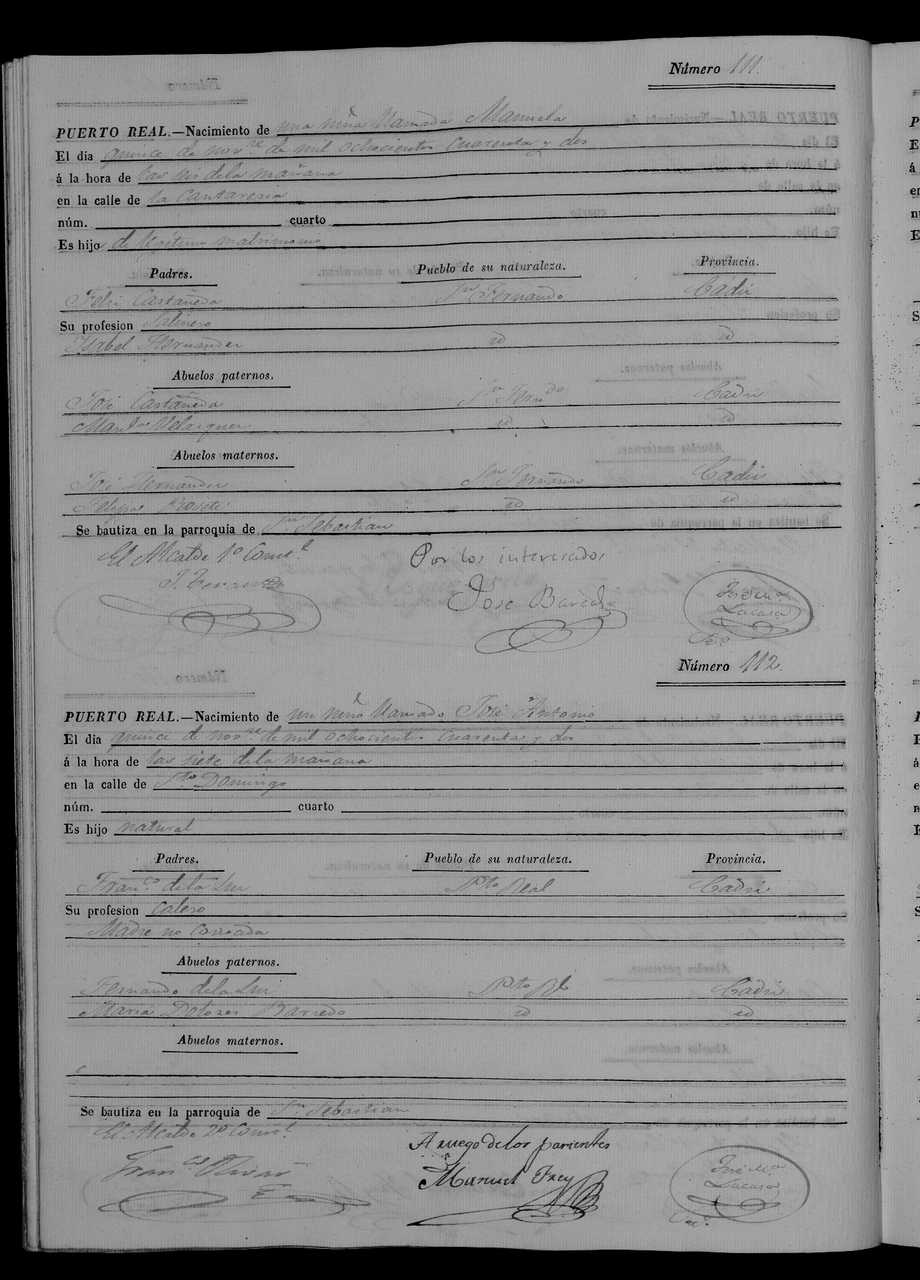 Número 111.
PUERTO REAL.—Nacimiento de una niña llamada Manuela
El dia quince de nov.re de mil ochocientos cuarenta y dos
á la hora de las de la mañana
en la calle de la Cantareria
núm. cuarto
Es hijo de legitimo matrimonio
Padres. Pueblo de su naturaleza. Provincia.
Felix Castañeda S.n Fernando Cadiz
Su profesion Salinero
Isabel Hernandez id id
Abuelos paternos.
José Castañeda S.n Fern.do Cadiz
Velazquez id id
Abuelos maternos.
José Hernandez S.n Fernando Cadiz
Felipa id id
Se bautiza en la parroquia de S.n Sebastian
El Alcalde 1º Const.l Por los interesados
José
Lacasa
Srio
Número 112.
PUERTO REAL.—Nacimiento de un niño llamado José Antonio
El dia quince de nov.re de mil ochocientos cuarenta y dos
á la hora de las siete de la mañana
en la calle de S.to Domingo
núm. cuarto
Es hijo natural
Padres. Pueblo de su naturaleza. Provincia.
Fran.co de la Luz P.to Real Cadiz
Su profesion Calero
Madre no conocida
Abuelos paternos.
Fernando de la Luz P.to Rl. Cadiz
Maria Dolores Barredo id id
Abuelos maternos.
Se bautiza en la parroquia de S.n Sebastian
El Alcalde 2º Const.l A ruego de los parientes
Fran.co Manuel Frey José M.a
Lacasa